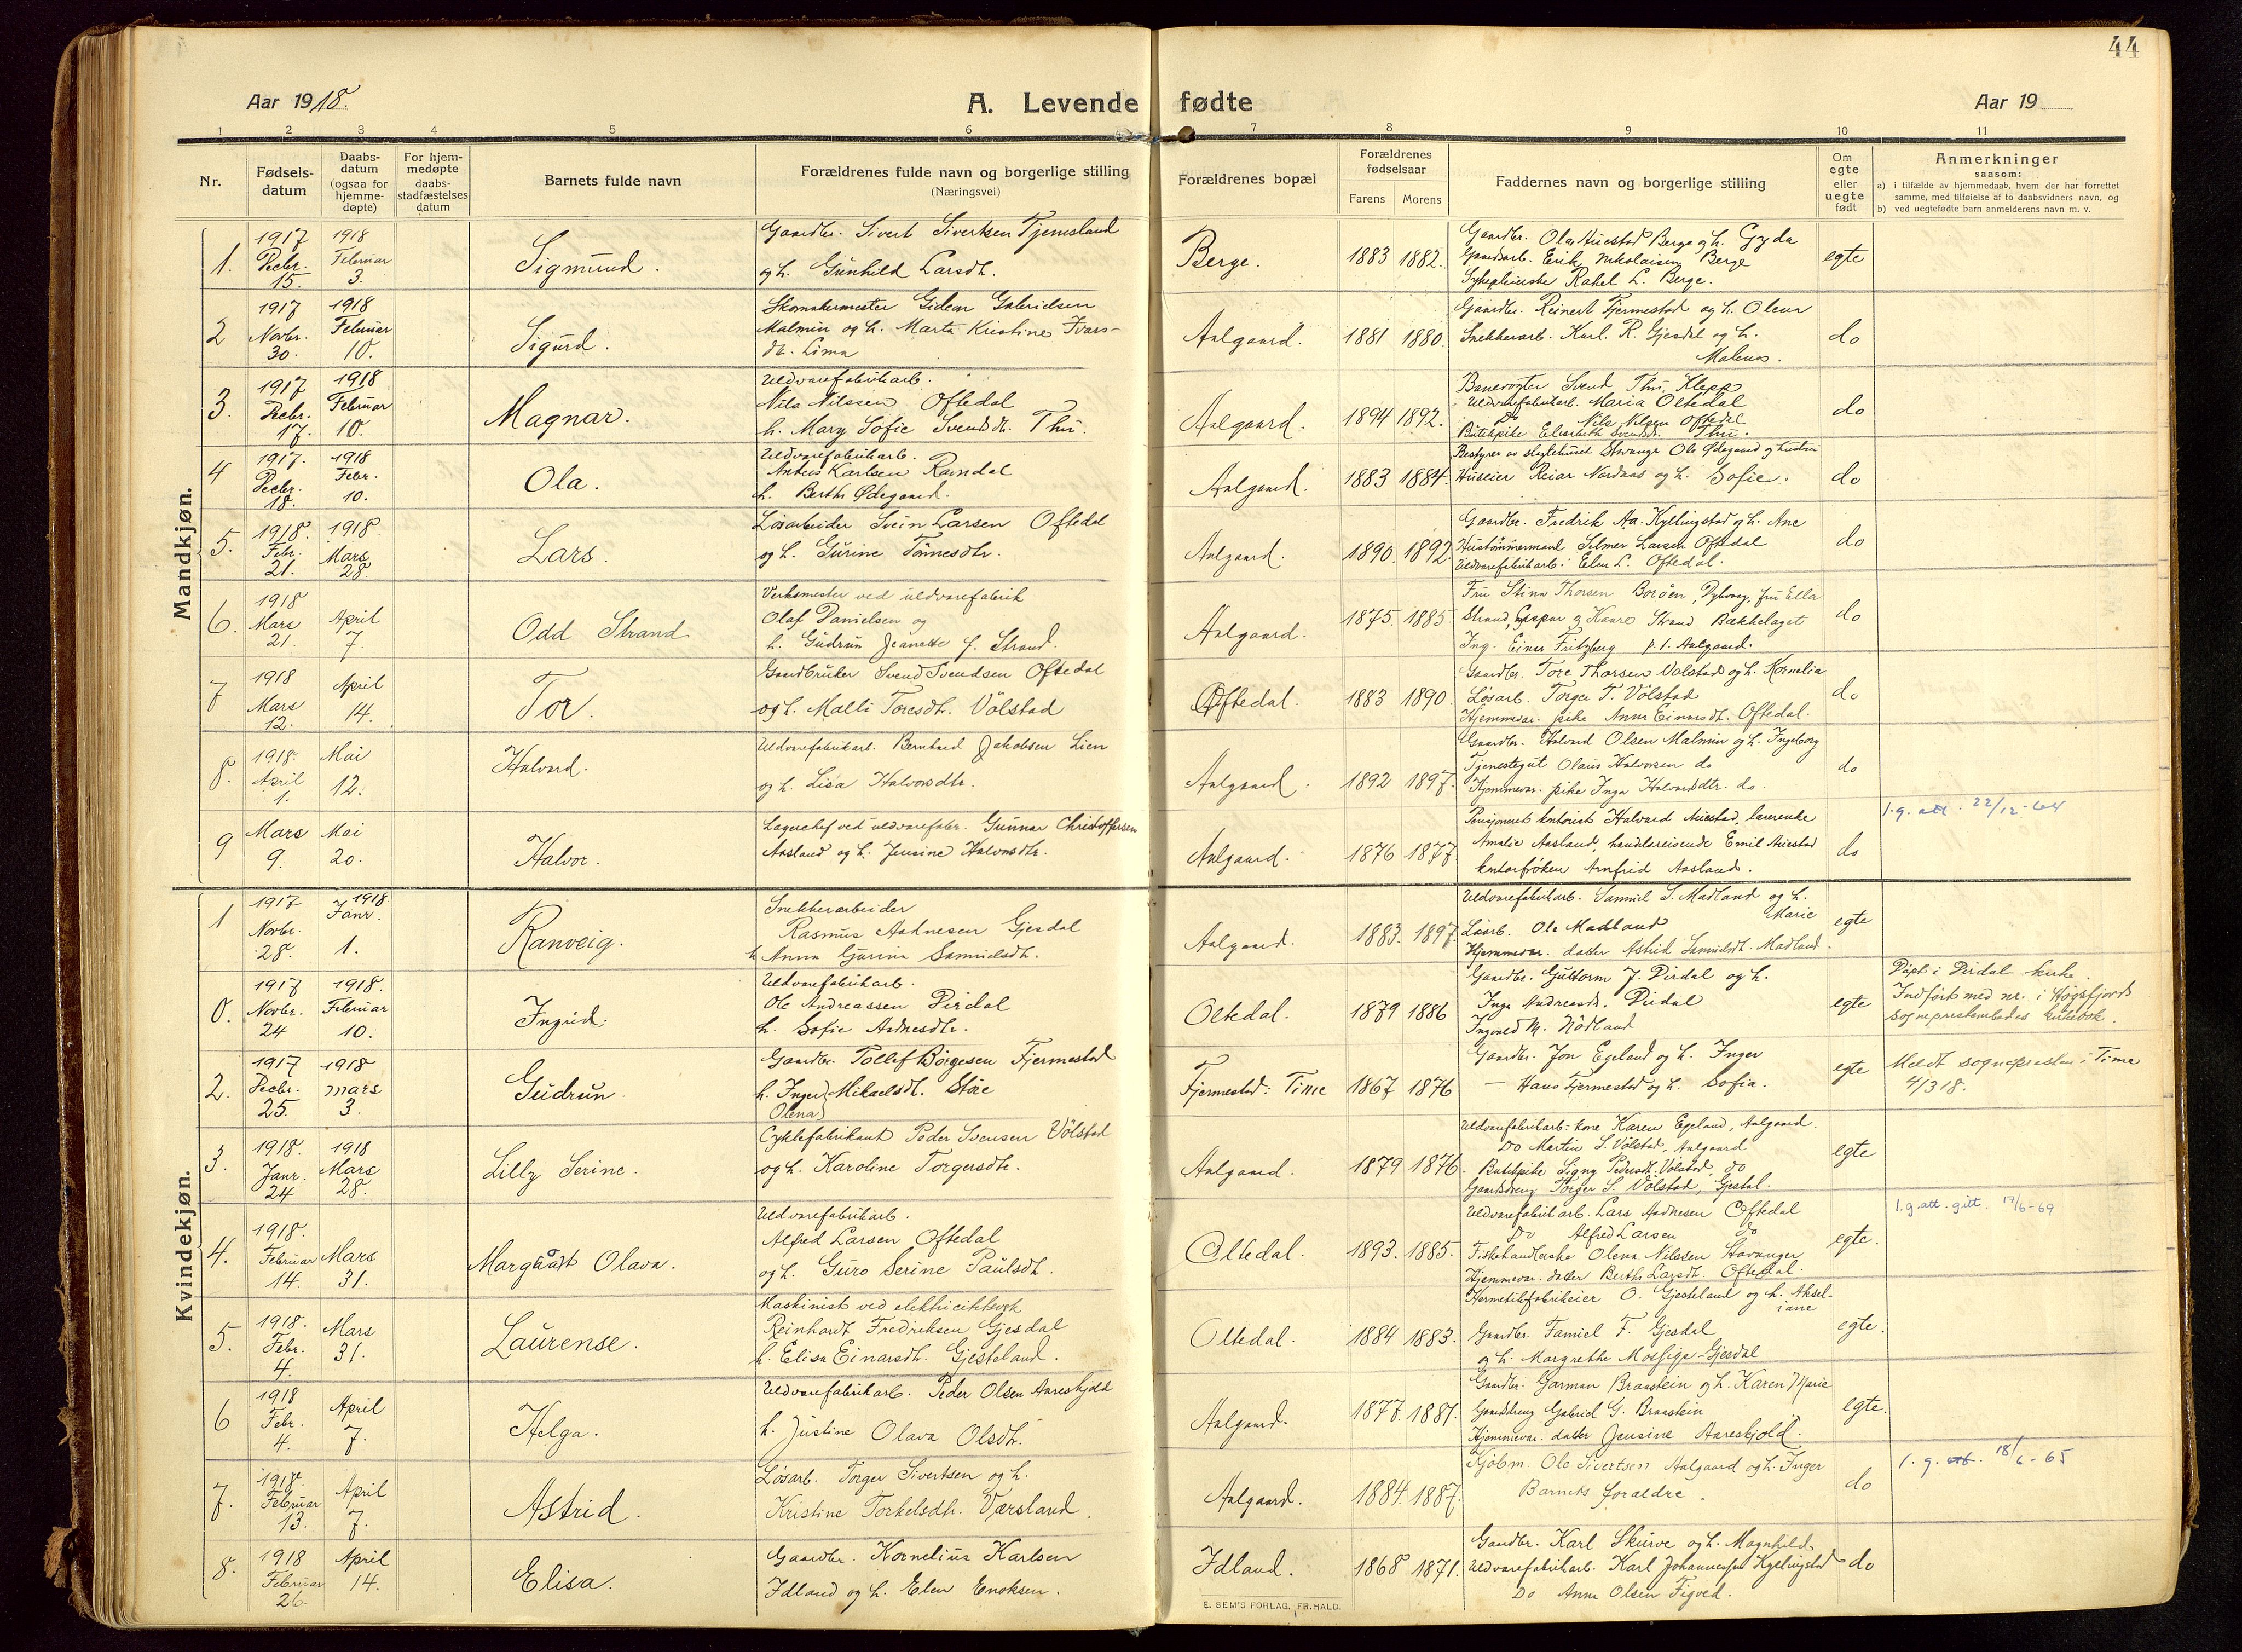 44
Aar 1918.
A. Levende fødte
Aar 19
1 2 3 4 5 6 7 8 9 10 11
Nr.
Fødsels-
datum
Daabs-
datum
(ogsaa for
hjemme-
døpte)
For hjem-
medøpte
daabs-
stadfæstelses
datum
Barnets fulde navn
Forældrenes fulde navn og borgerlige stilling
(Næringsvei)
Forældrenes bopæl
Forældrenes
fødselsaar
Farens Morens
Faddernes navn og borgerlige stilling
Om
egte
eller
uegte
født
Anmerkninger
saasom:
a) i tilfælde av hjemmedaab, hvem der har forrettet
samme, med tilføielse af to daabsvidners navn, og
b) ved uegtefødte barn anmelderens navn m. v.
Mandkjøn.
1. 1917 Decbr. 15. 1918 Februar 3. Sigmund.
Gaardbr. Sivert Sivertsen Tjemsland
og h. Gunhild Larsdtr.
Berge. 1883 1882.
Gaardbr. Ola Auestad Berge og h. Gyda
Gaardarb. Erik Nikolaisen Berge
Sykepleierske Rakel L. Berge.
egte
2 1917 Novbr. 30. 1918 Februar 10. Sigurd.
Skomakermester Gideon Gabrielsen
Malmin og h. Marta Kristine Ivars-
dtr. Lima
Aalgaard. 1881 1880.
Gaardbr. Reinert Fjermestad og h. Olena
Snekkerarb. Karl. R. Gjesdal og h.
Malena.
do
3. 1917 Decbr. 17. 1918 Februar 10. Magnar.
Uldvarefabrikarb.
Nils Nilssen Oftedal
h. Mary Sofie Svendsdtr. Thu.
Aalgaard. 1894 1892.
Banevogter Svend Thu, Klepp
Uldvarefabrikarb. Maria Oltedal
Do Nils Nilsen Oftedal
Butikpike Elisabeth Svendsdtr. Thu.
do
4 1917. Decbr. 18. 1918 Febr. 10. Ola.
Uldvarefabrikarb.
Anders Karlsen Ramdal
h. Bertha Ødegaard.
Aalgaard. 1883 1884.
Bestyrer av slagtehuset Stavanger Ole Ødegaard og hustru
Huseier Reiar Nordaas og h. Sofie.
do
5. 1918. Febr. 21. 1918. Mars 28. Lars.
Løsarbeider Svein Larsen Oftedal
og h. Gurine Tønnesdtr.
Aalgaard. 1890. 1892.
Gaardbr. Fredrik Aa. Kyllingstad og h. Ane
Hustømmermand Selmer Larsen Oftedal
Uldvarefabrikarb. Elen L. Oftedal.
do
6. 1918 Mars 21. April 7. Odd Strand
Verksmester ved uldvarefabrik
Olaf Danielsen og
h. Gudrun Jeanette f. Strand.
Aalgaard. 1875. 1885
Fru Stina Thorsen Borøen, Dybvaag, fru Ella
Strand, Gaspar & Kaare Strand Bækkelaget
Ing. Einar Fritzberg p. t. Aalgaard.
do
7 1918 Mars 12. April 14. Tor.
Gaardbruker Svend Svendsen Oftedal
og h. Malli Toresdtr. Volstad
Oftedal. 1883 1890.
Gaardbr. Tore Thorsen Volstad og h. Kornelia
Løsarb. Torger T. Volstad
Hjemmevær. pike Anna Einarsdtr. Oftedal.
do
8. 1918. April 1. Mai 12. Halvard.
Uldvarefabrikarb. Bernhard Jakobsen Lien
og h. Lisa Halvorsdtr.
Aalgaard. 1892 1897.
Gaardbr. Halvard Olsen Malmin og h. Ingeborg
Tjenestegut Olaus Halvorsen do
Hjemmevær. pike Inga Halvardsdtr. do.
do
9 Mars 9. Mai 20. Halvor.
Lagerchef ved uldvarefabr. Gunnar Christoffersen
Aasland og h. Jensine Halvorsdtr.
Aalgaard. 1876 1877
Pensjonert kontorist Halvard Auestad, lærerinke
Amalie Aasland, handelsreisende Emil Auestad
kontorfrøken Arnfrid Aasland.
do
1.g. att. 22/12-64
Kvindekjøn.
1 1917 Novbr. 28. 1918 Janr. 1. Ranveig.
Snekkerarbeider
Rasmus Aadnesen Gjesdal
h. Anna Gurina Samuelsdtr.
Aalgaard. 1883. 1897.
Uldvarefabrikarb. Samuel S. Madland og h.
Marie
Løsarb. Ole Madland
Hjemmevær. datter Astrid Samuelsdtr. Madland.
egte
0. 1917 Novbr. 24 1918. Februar 10. Ingrid.
Uldvarefabrikarb.
Ole Andreassen Dirdal
h. Sofie Aadnesdtr.
Oltedal. 1879 1886
Gaardbr. Guttorm J. Dirdal og h.
Inga Andreasdtr. Dirdal
Ingvald M. Nødland
egte
Døpt i Dirdal kirke.
Indført med nr. i Høgsfjords
sogneprestembedes kirkebok.
2. 1917 Decbr. 25. 1918 mars 3. Gudrun.
Gaardbr. Tollef Børgesen Fjermestad
h. Inger Mikaelsdtr. Støe
Olena
Fjermestad: Time 1867 1876
Gaardbr. Jon Egeland og h. Inger
— Hans Fjermestad og h. Sofia.
egte
Meldt sognepresten i Time
4/3 18.
3. 1918. Janr. 24 1918 Mars 28. Lilly Serine.
Cyklefabrikant Peder Svensen Volstad
og h. Karoline Torgersdtr.
Aalgaard. 1879 1876.
Uldvarefabrikarb.-kone Karen Egeland, Aalgaard.
Do Martin S. Volstad, Aalgaard
Butikpike Signy Pedersdtr. Volstad, do
Gaardsdreng Torger S. Volstad, Gjesdal.
egte
4. 1918. Februar 14. Mars 31. Margaat Olava.
Uldvarefabrikarb.
Alfred Larsen Oftedal
og h. Guro Serine Paulsdtr.
Oltedal. 1893. 1885.
Uldvarefabrikarb. Lars Aadnesen Oftedal
Do Alfred Larsen do
Fiskehandlerske Olena Nilssen Stavanger
Hjemmevær. datter Bertha Larsdtr. Oftedal.
egte.
1.g. att. gitt. 17/6-69
5. 1918. Febr. 4. Mars 31. Laurense.
Maskinist ved elektricitetsverk
Reinhardt Fredriksen Gjesdal
h. Elisa Einarsdtr. Gjesteland.
Oltedal. 1884 1883.
Hermetikfabrikeier O. Gjesteland og h. Aksel-
iane
Gaardbr. Tamiel F. Gjesdal
og h. Margrethe Mossige-Gjesdal
egte.
6 1918 Febr. 4. April 7. Helga.
Uldvarefabrikarb. Peder Olsen Aareskjold
h. Justine Olava Olsdtr.
Aalgaard. 1877. 1887.
Gaardbr. Garman Braastein og h. Karen Marie
Gaardsdreng Gabriel G. Braastein
Hjemmevær. datter Jensine Aareskjold.
egte.
7. 1918. Februar 13. April 7. Astrid.
Løsarb. Torger Sivertsen og h.
Kristine Torkelsdtr. Værsland.
Aalgaard. 1884. 1887.
Kjøbm. Ole Sivertsen Aalgaard og h. Inger
Barnets forældre.
do
1. g. att. 18/6-65
8. 1918 Februar 26. April 14. Elisa.
Gaardbr. Kornelius Karlsen
Idland og h. Elen Enoksen.
Idland. 1868 1871.
Gaardbr. Karl Skurve og h. Magnhild
Uldvarefabrikarb. Karl Johannessen Kyllingstad
Do Anna Olsen Figved.
do
E. SEM'S FORLAG, FR.HALD.